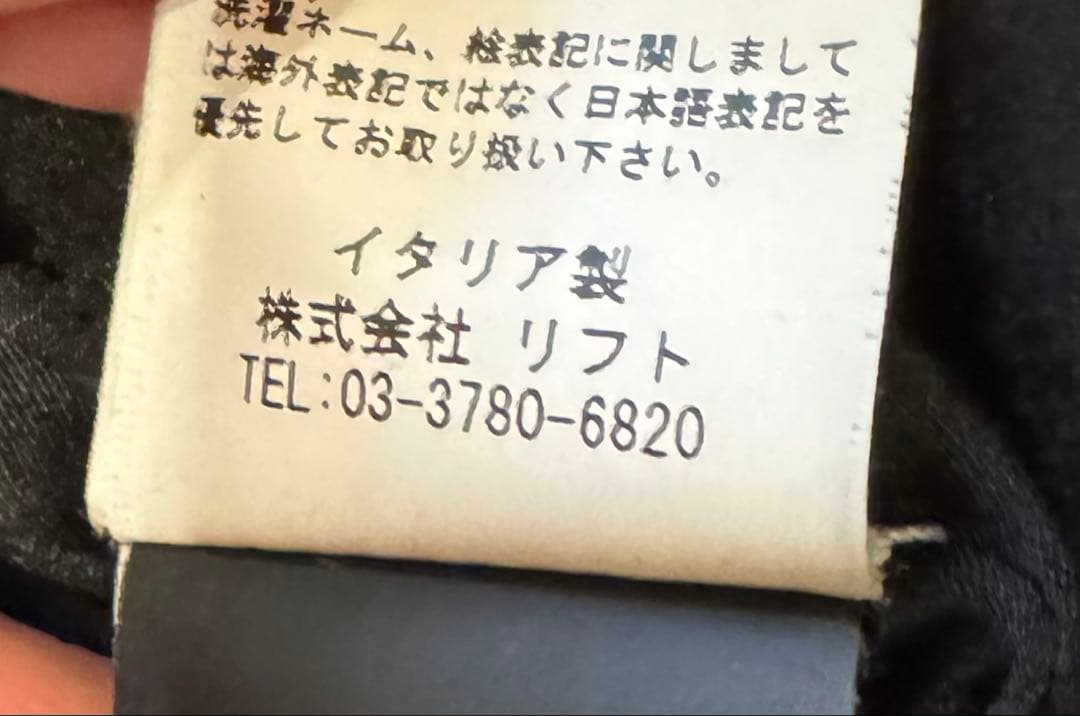 洗濯ネーム、絵表記に関しまして
は海外表記ではなく日本語表記を
優先してお取り扱い下さい。
イタリア製
株式会社 リフト
TEL:03-3780-6820